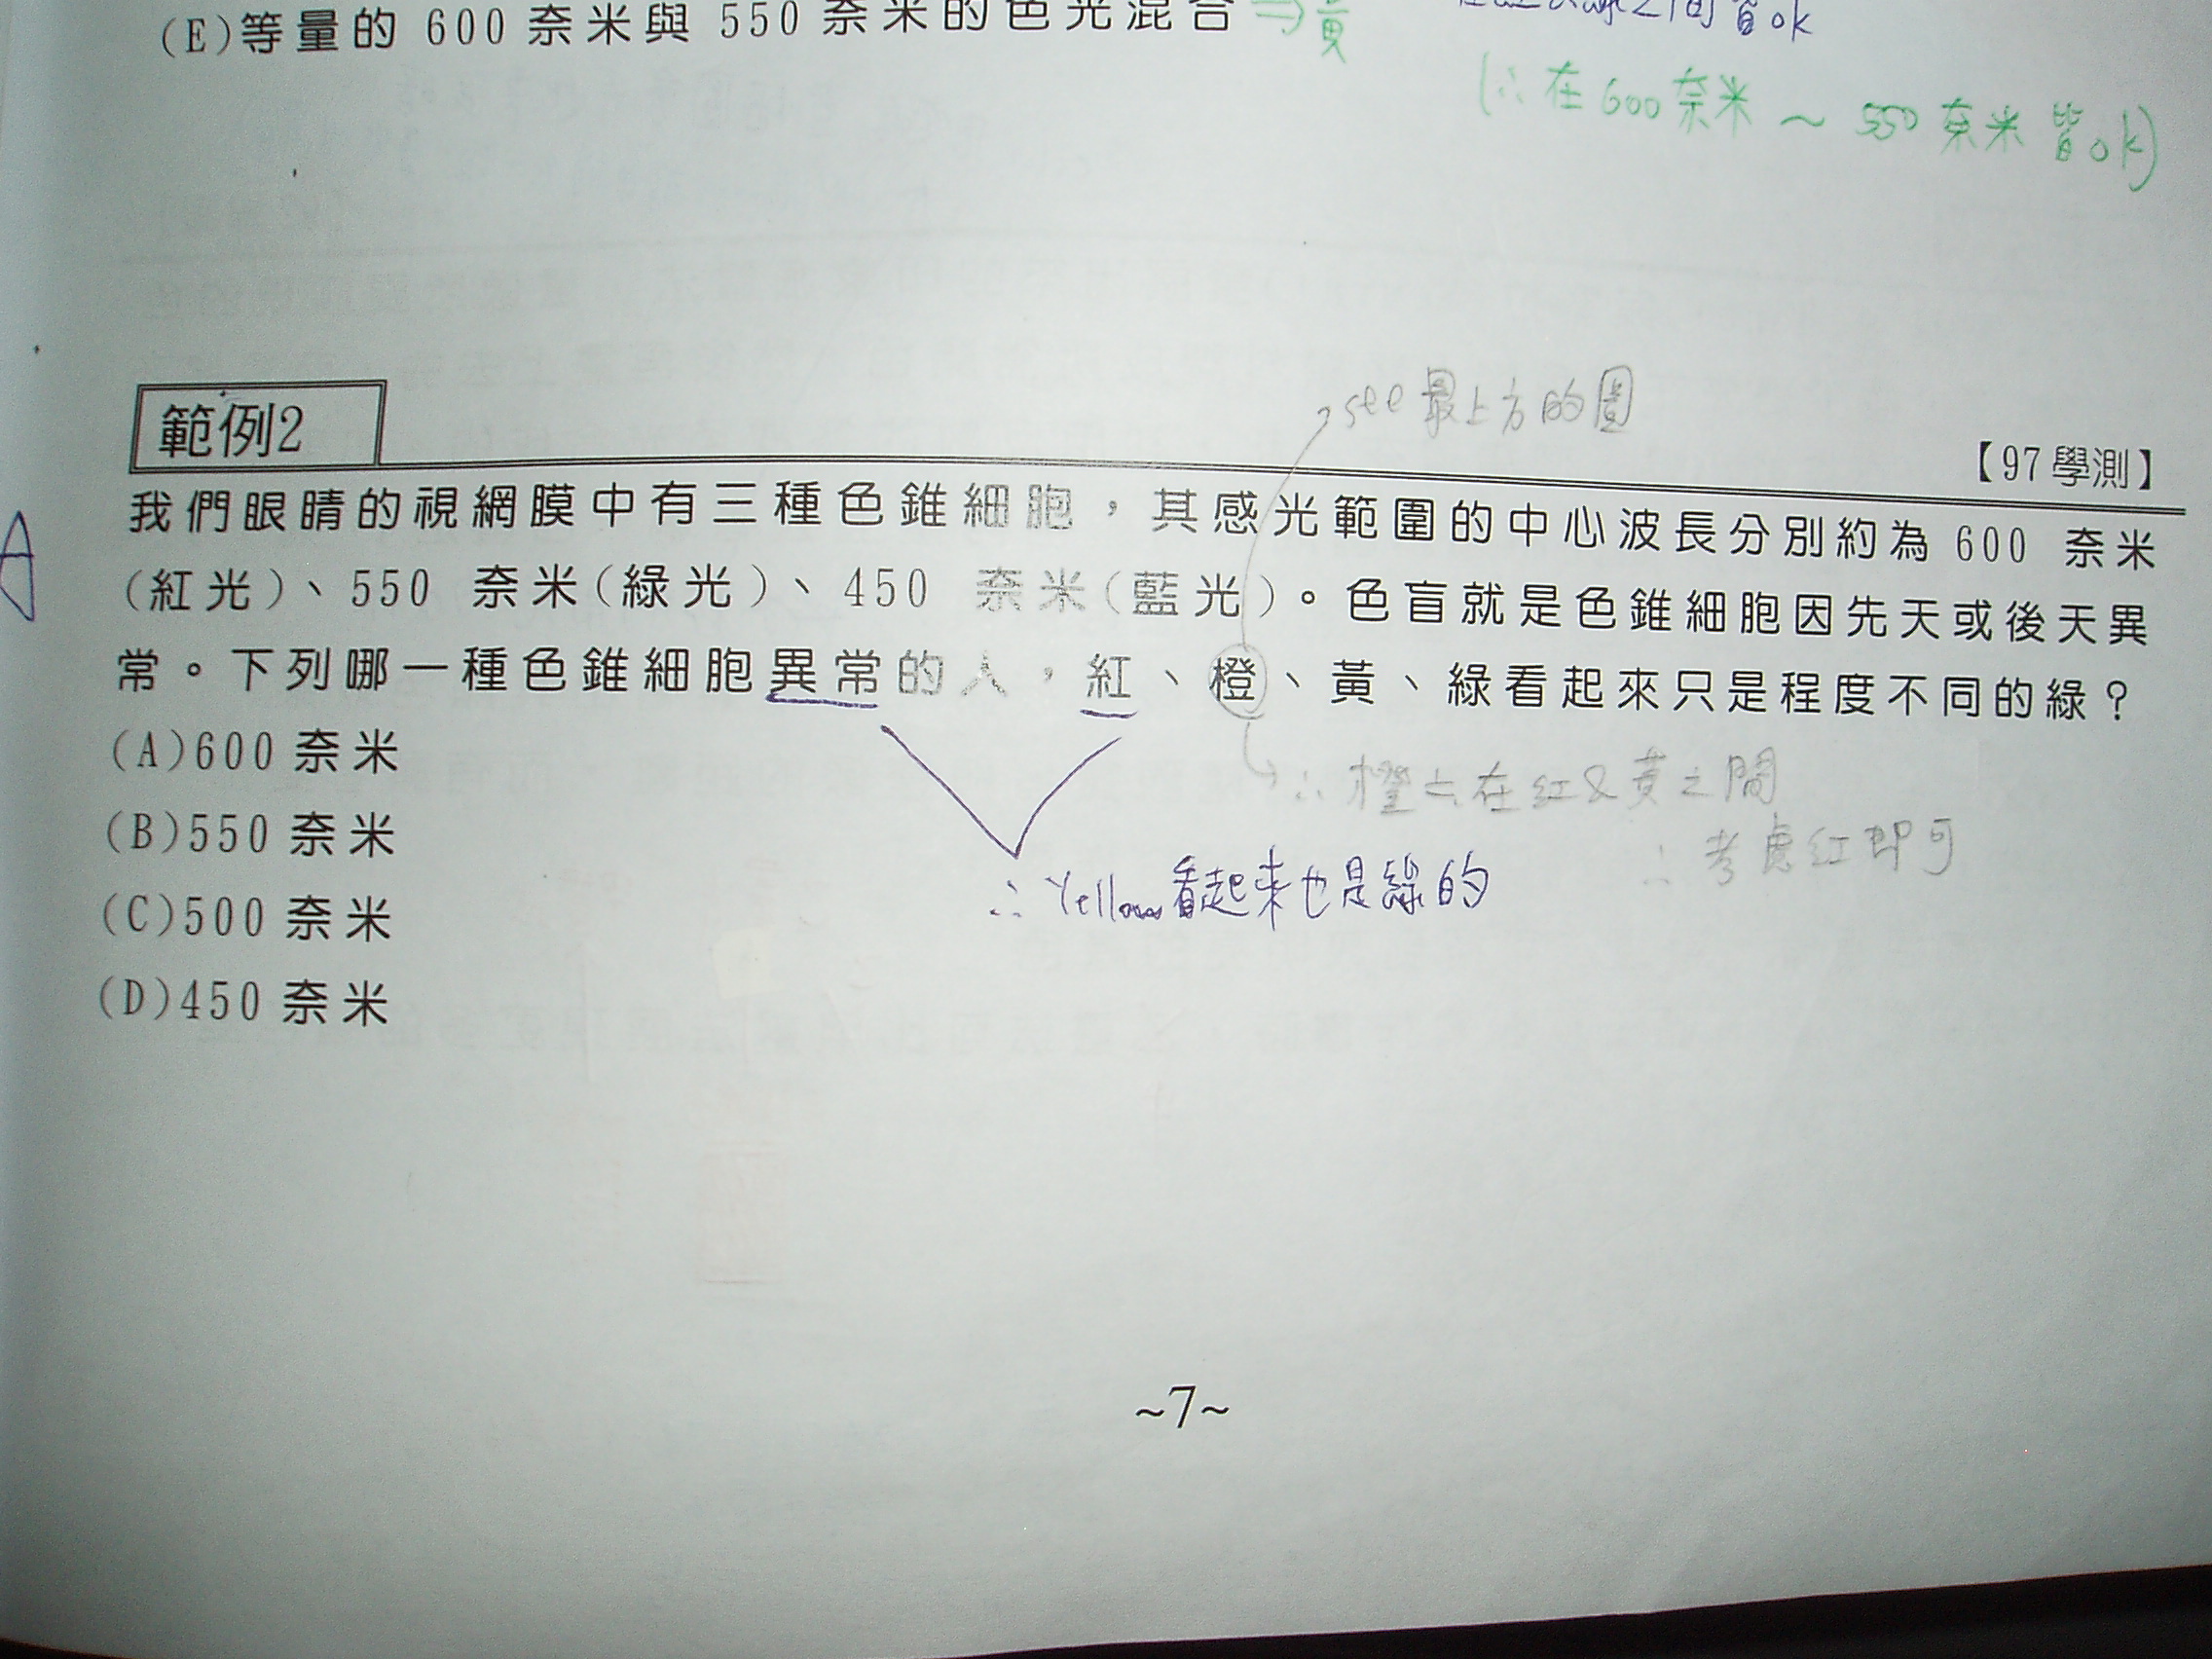 (E)等量的 600 奈米與 550 奈米的色光混合 ⇒黃
之間皆ok
(∴在600奈米 ~ 550奈米皆ok)
see 最上方的圖
範例2
【97學測】
我們眼睛的視網膜中有三種色錐細胞，其感光範圍的中心波長分別約為 600 奈米
A
(紅光)、550 奈米(綠光)、450 奈米(藍光)。色盲就是色錐細胞因先天或後天異
常。下列哪一種色錐細胞異常的人，紅、橙、黃、綠看起來只是程度不同的綠？
(A)600 奈米
∴橙亦在紅&黃之間
(B)550 奈米
∴考慮紅即可
∴Yellow看起來也是綠的
(C)500 奈米
(D)450 奈米
~7~